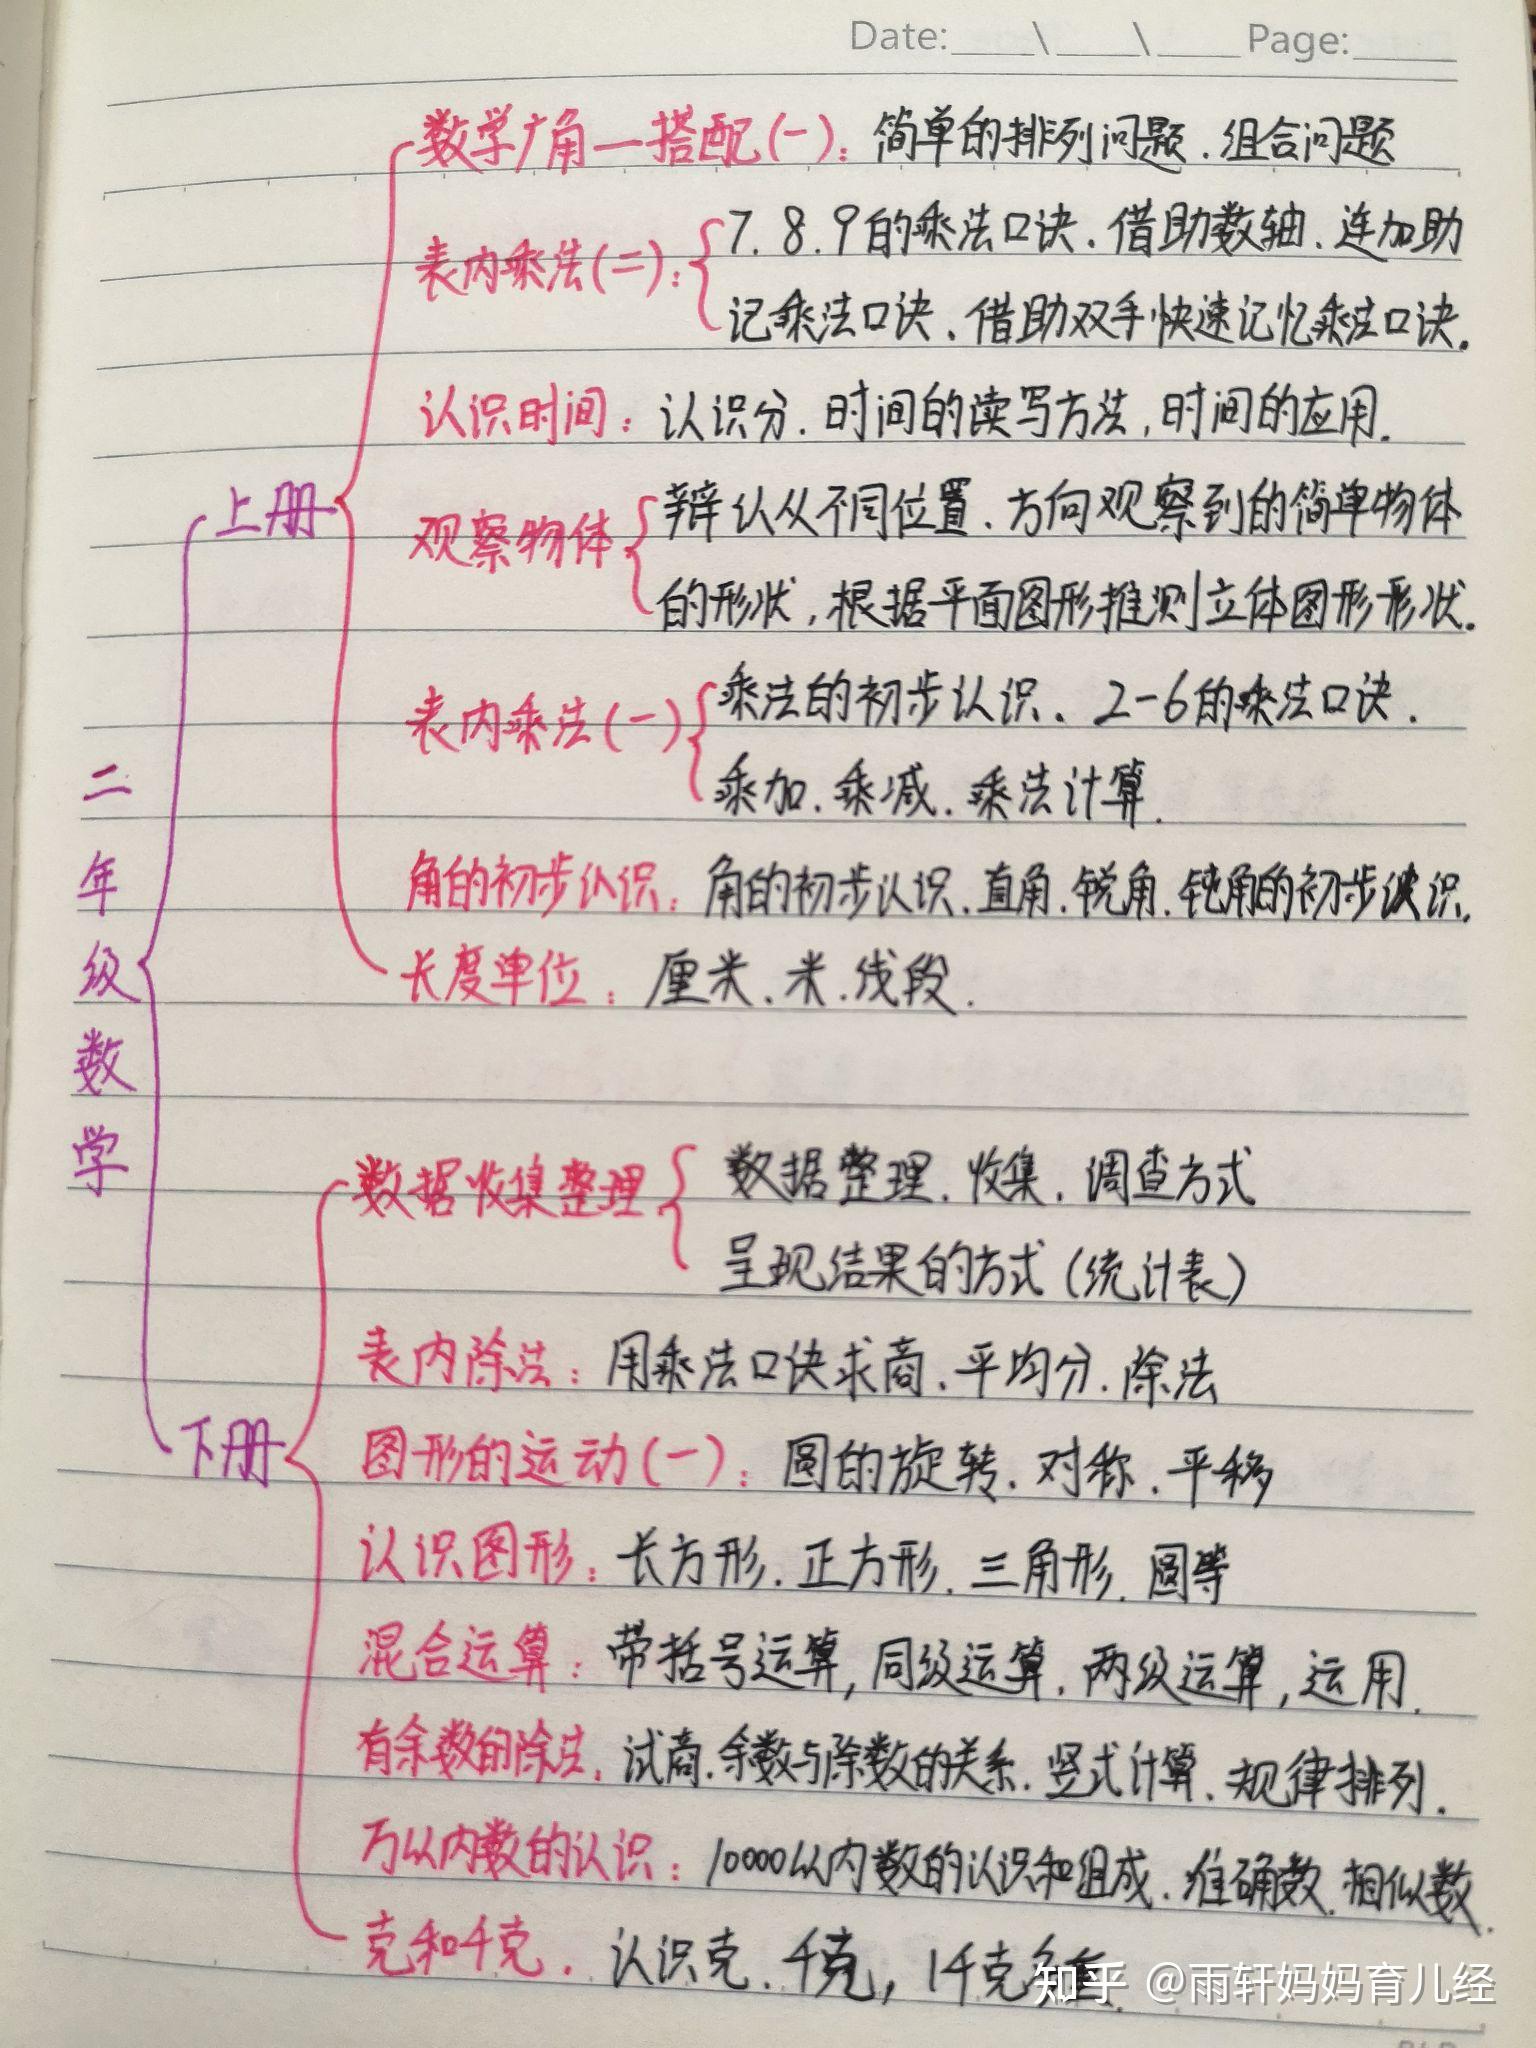 Date:____\____\____Page:_____
数学广角—搭配(一)：简单的排列问题、组合问题
表内乘法(二)：
7、8、9的乘法口诀、借助数轴、连加助
记乘法口诀、借助双手快速记忆乘法口诀.
认识时间：认识分、时间的读写方法,时间的应用.
上册
观察物体
辩认从不同位置、方向观察到的简单物体
的形状,根据平面图形推测立体图形形状.
表内乘法(一)
乘法的初步认识、2-6的乘法口诀、
乘加、乘减、乘法计算.
二年级数学
角的初步认识：角的初步认识、直角、锐角、钝角的初步认识.
长度单位：厘米、米、线段.
数据收集整理
数据整理、收集、调查方式
呈现结果的方式(统计表)
表内除法：用乘法口诀求商、平均分、除法
下册
图形的运动(一)：圆的旋转、对称、平移
认识图形：长方形、正方形、三角形、圆等
混合运算：带括号运算,同级运算、两级运算,运用.
有余数的除法：试商、余数与除数的关系、竖式计算、规律排列.
万以内数的认识：10000以内数的认识和组成、准确数、相似数.
克和千克、认识克、千克,1千克多重.
知乎 @雨轩妈妈育儿经